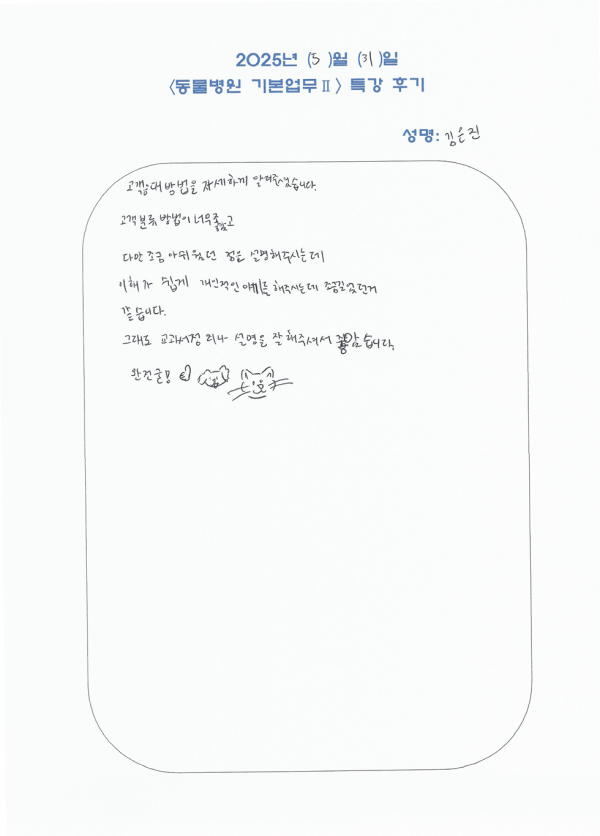 2025년 (5)월 (31)일
<동물병원 기본업무Ⅱ> 특강 후기
성명: 김은진
고객응대 방법을 자세하게 알려주셨습니다.
고객분류 방법이 너무좋았고
다만 조금 아쉬웠던 점은 설명해주시는데
이해가 쉽게 개인적인 얘기를 해주시는데 조금길었던거
같습니다.
그래도 교과서정리나 설명을 잘 해주셔서 좋았습니다.
완전굿